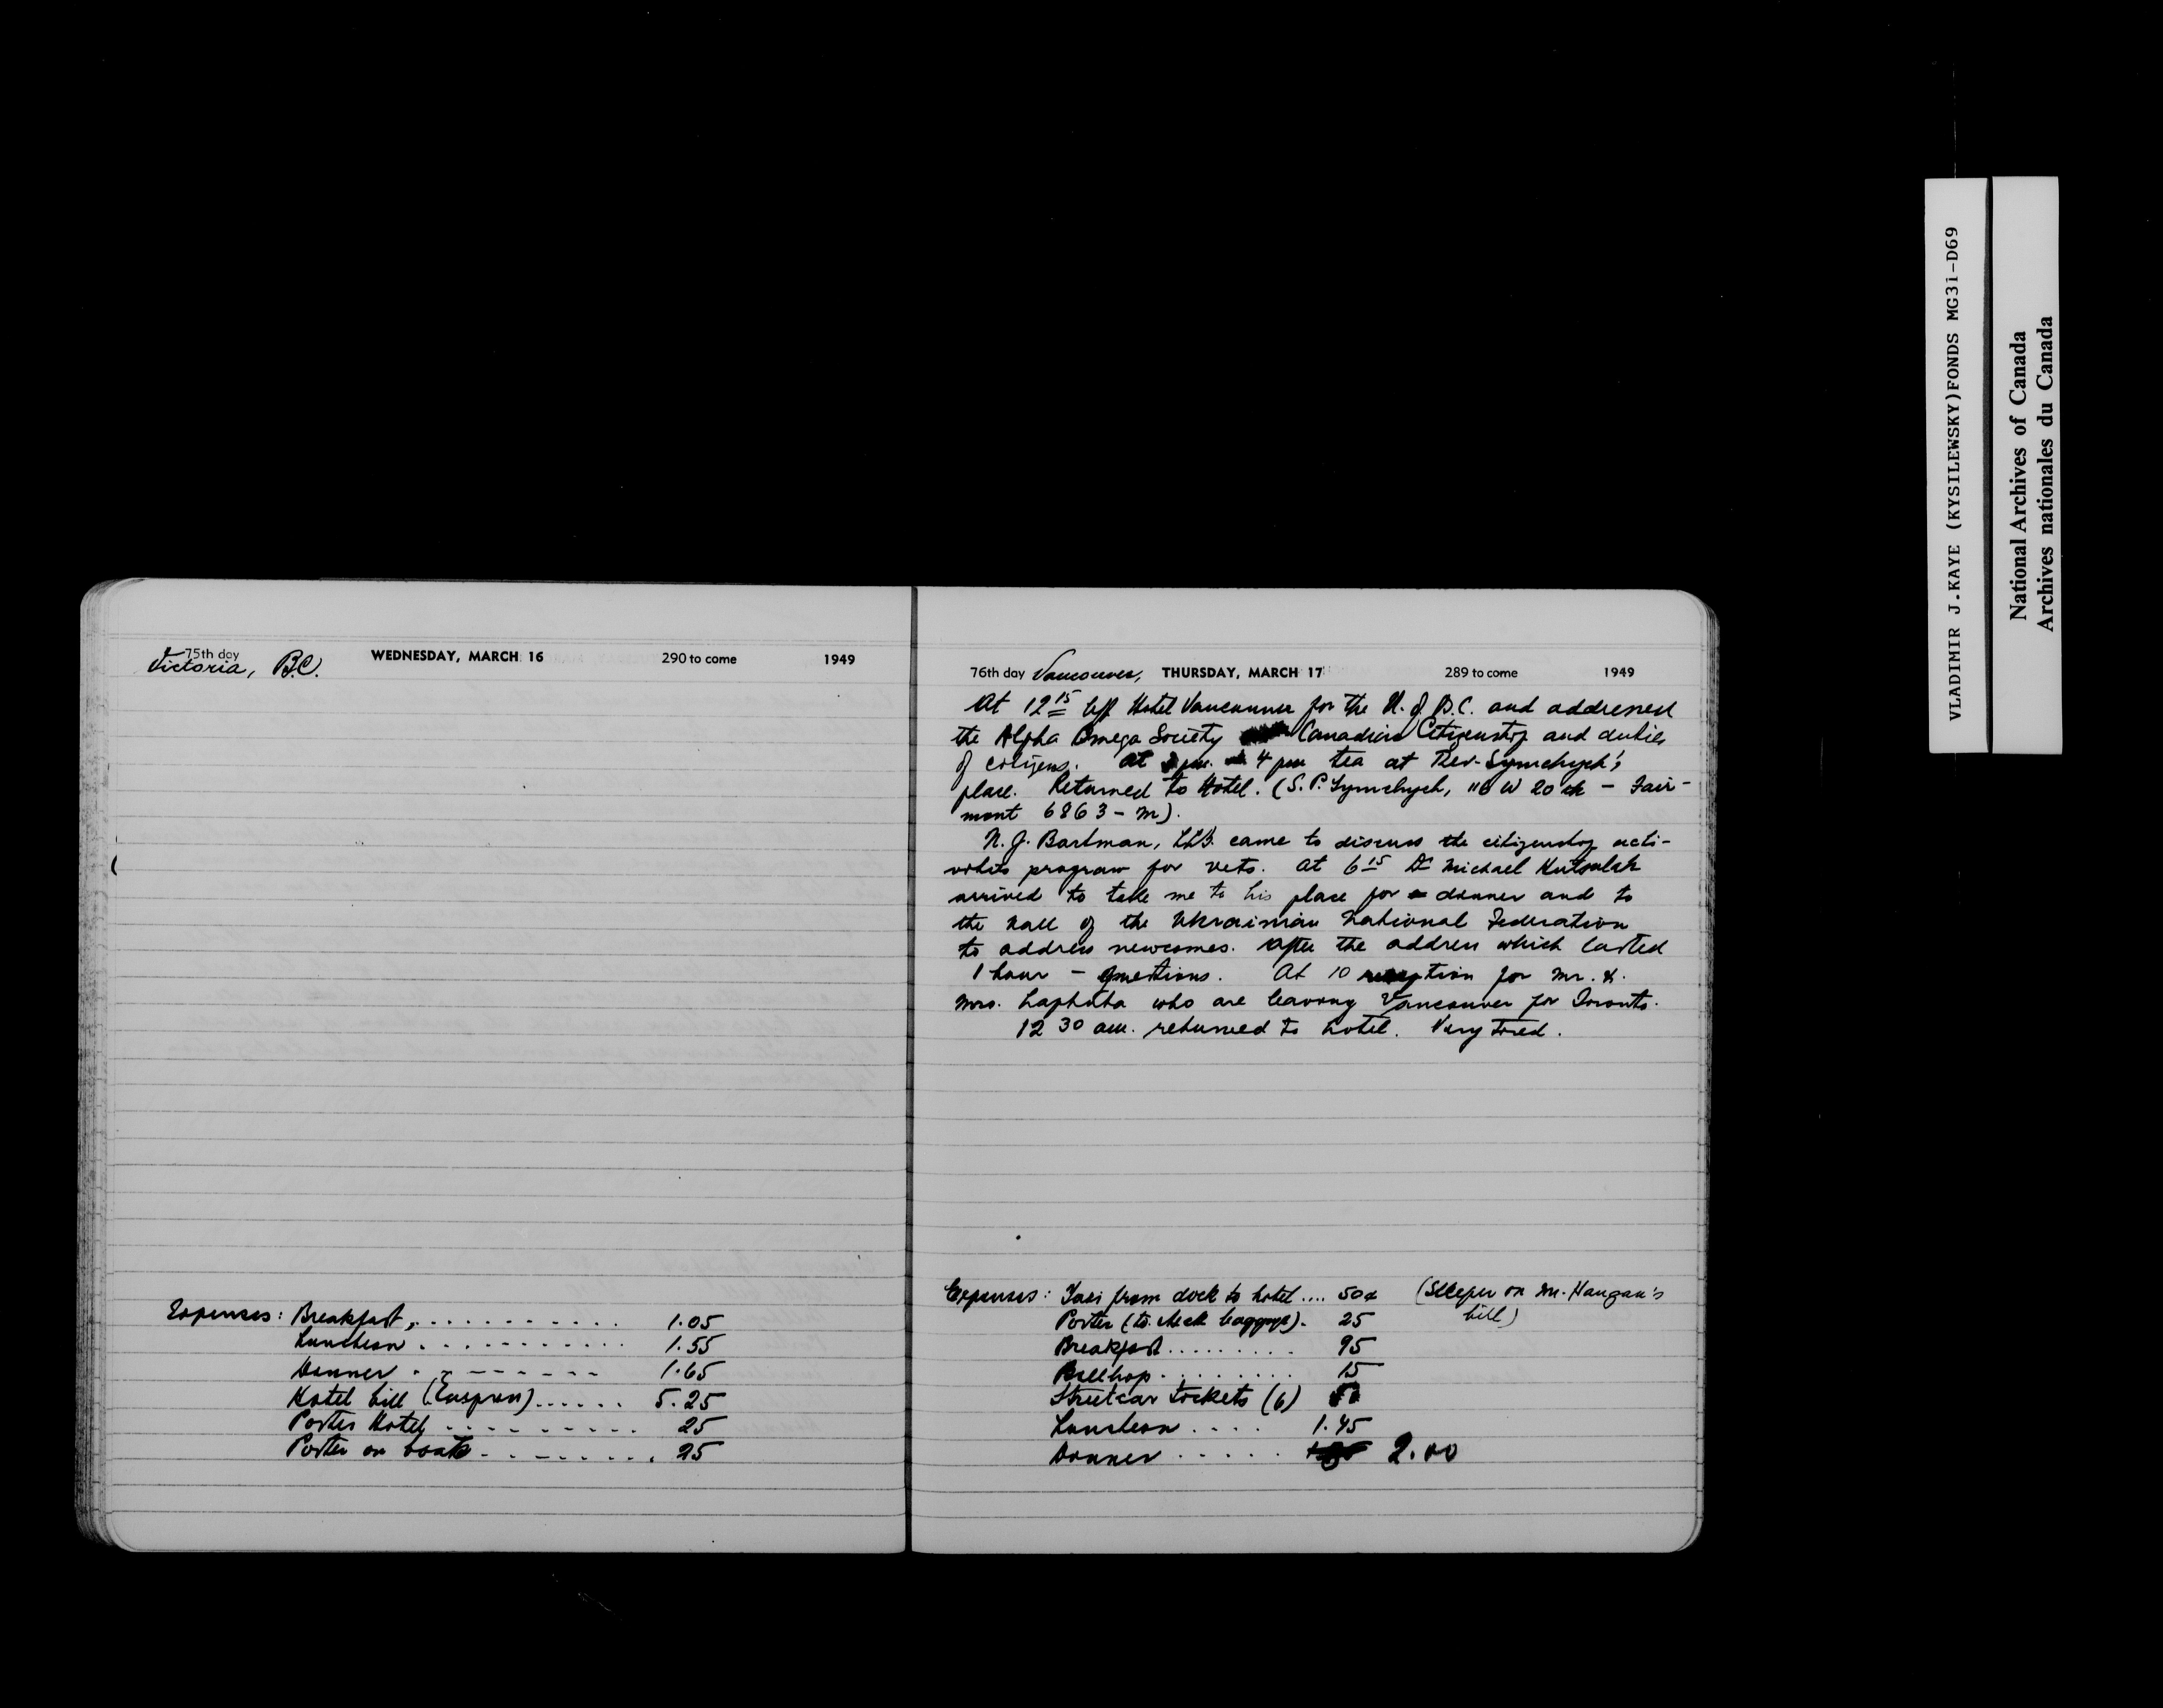 75th day WEDNESDAY, MARCH 16 290 to come 1949
Victoria, B.C.
Expenses: Breakfast, . . . . . . . . . . . 1.05
Luncheon . . . . . . . . . . . 1.55
Dinner . . - - - - - - 1.65
Hotel bill (Empress) . . . . . . 5.25
Porter Hotel . . . . . . . . . . 25
Porter on boat . . . . . . . . . 25
76th day Vancouver, THURSDAY, MARCH 17 289 to come 1949
At 12 15 left Hotel Vancouver for the U. of B.C. and addressed
the Alpha Omega Society Canadian Citizenship and duties
of citizens. At 4 pm tea at Rev. Symchych's
place. Returned to Hotel. (S. P. Symchych, 116 W 20th - Fair-
mont 6863-M).
N. J. Bartman, LLB. came to discuss the citizenship acti-
vities program for vets. At 6 15 Dr Michael
arrived to take me to his place for dinner and to
the hall of the Ukrainian National Federation
to address newcomes. After the address which lasted
1 hour - questions. At 10 reception for Mr. &
Mrs. who are leaving Vancouver for Toronto.
12 30 am. returned to hotel. Very tired.
Expenses: Taxi from dock to hotel .... 50¢ (Sleeper on Mr. bill)
Porter (to check baggage). 25
Breakfast . . . . . . . . . 95
Bellhop . . . . . . . . 15
Streetcar tickets (6) 50
Luncheon . . . . 1.45
Dinner . . . . . 2.00
VLADIMIR J.KAYE (KYSILEWSKY)FONDS MG31-D69
National Archives of Canada
Archives nationales du Canada